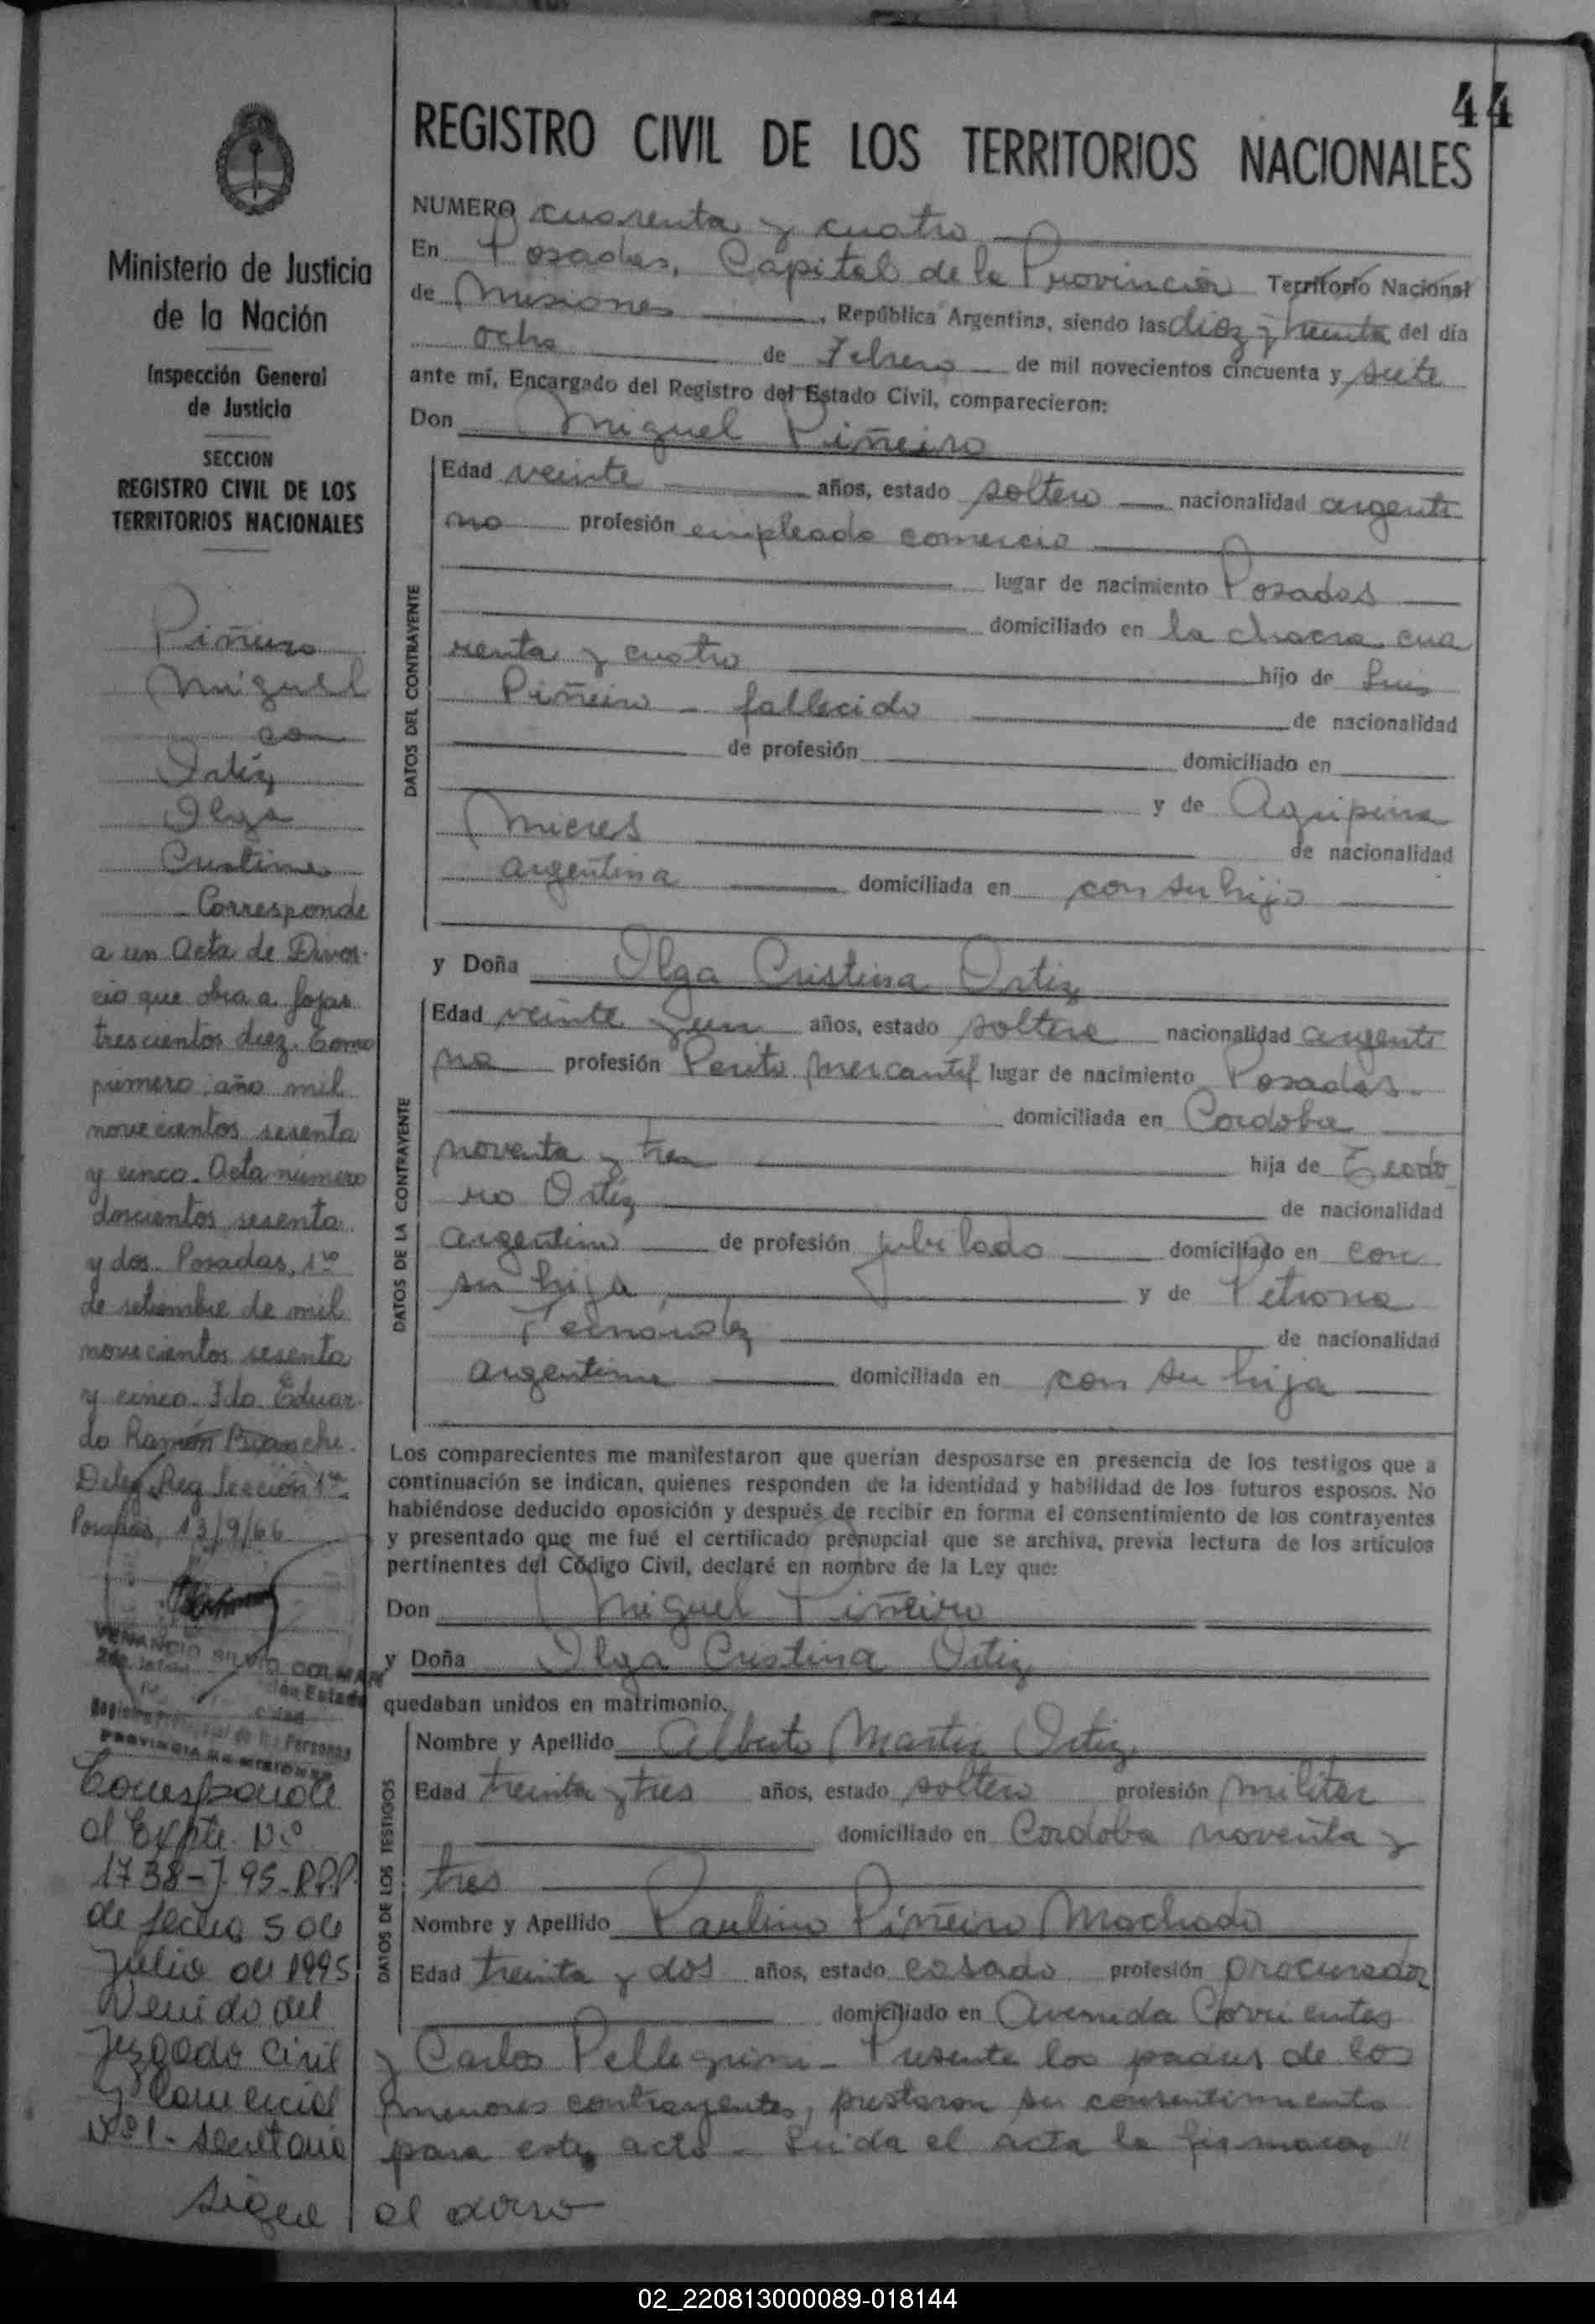 44
REGISTRO CIVIL DE LOS TERRITORIOS NACIONALES
NUMERO cuarenta y cuatro
En Posadas, Capital de la Provincia Territorio Nacional
de Misiones, República Argentina, siendo las diez y treinta del día
ocho de Febrero de mil novecientos cincuenta y siete
ante mí, Encargado del Registro del Estado Civil, comparecieron:
Don Miguel Piñeiro
DATOS DEL CONTRAYENTE
Edad veinte años, estado soltero nacionalidad argenti
no profesión empleado comercio
lugar de nacimiento Posadas
domiciliado en la chacra cua
renta y cuatro hijo de Luis
Piñeiro - fallecido de nacionalidad
de profesión domiciliado en
y de Agripina
Mieres de nacionalidad
argentina domiciliada en con su hijo
y Doña Ilga Cristina Ortiz
DATOS DE LA CONTRAYENTE
Edad veinte y un años, estado soltera nacionalidad argenti
na profesión Perito Mercantil lugar de nacimiento Posadas.
domiciliada en Cordoba
noventa y tres hija de Teodo
ro Ortiz de nacionalidad
argentino de profesión jubilado domiciliado en con
su hija, y de Petrona
Fernandez de nacionalidad
argentina domiciliada en con su hija
Los comparecientes me manifestaron que querían desposarse en presencia de los testigos que a
continuación se indican, quienes responden de la identidad y habilidad de los futuros esposos. No
habiéndose deducido oposición y después de recibir en forma el consentimiento de los contrayentes
y presentado que me fué el certificado prenupcial que se archiva, previa lectura de los artículos
pertinentes del Código Civil, declaré en nombre de la Ley que:
Don Miguel Piñeiro
y Doña Ilga Cristina Ortiz
quedaban unidos en matrimonio.
DATOS DE LOS TESTIGOS
Nombre y Apellido Alberto Martin Ortiz
Edad treinta y tres años, estado soltero profesión militar
domiciliado en Cordoba noventa y
tres
Nombre y Apellido Paulino Piñeiro Machado
Edad treinta y dos años, estado casado profesión procurador
domiciliado en Avenida Corrientes
y Carlos Pellegrini - Presente los padres de los
menores contrayentes, prestaron su consentimiento
para este acto - Leida el acta la firmaron
al dorso
Ministerio de Justicia
de la Nación
Inspección General
de Justicia
SECCION
REGISTRO CIVIL DE LOS
TERRITORIOS NACIONALES
Piñeiro
Miguel
con
Ortiz
Ilga
Cristina
Corresponde
a un Acta de Divor-
cio que obra a fojas
trescientos diez. Tomo
primero, año mil
novecientos sesenta
y cinco. Acta número
doscientos sesenta
y dos. Posadas, 1ro
de setiembre de mil
novecientos sesenta
y cinco. Fdo. Eduar-
do Ramón
Deleg. Reg. Sección 1ra
Posadas, 13/9/66
VENANCIO SILVIO COLMAN
PROVINCIA DE MISIONES
Corresponde
al Expte. Nº
1738-J-95-RPP
de fecha 5 de
Julio de 1995
Venido del
Juzgado Civil
y Comercial
Nº 1 - Secretaria
sigue
02_220813000089-018144